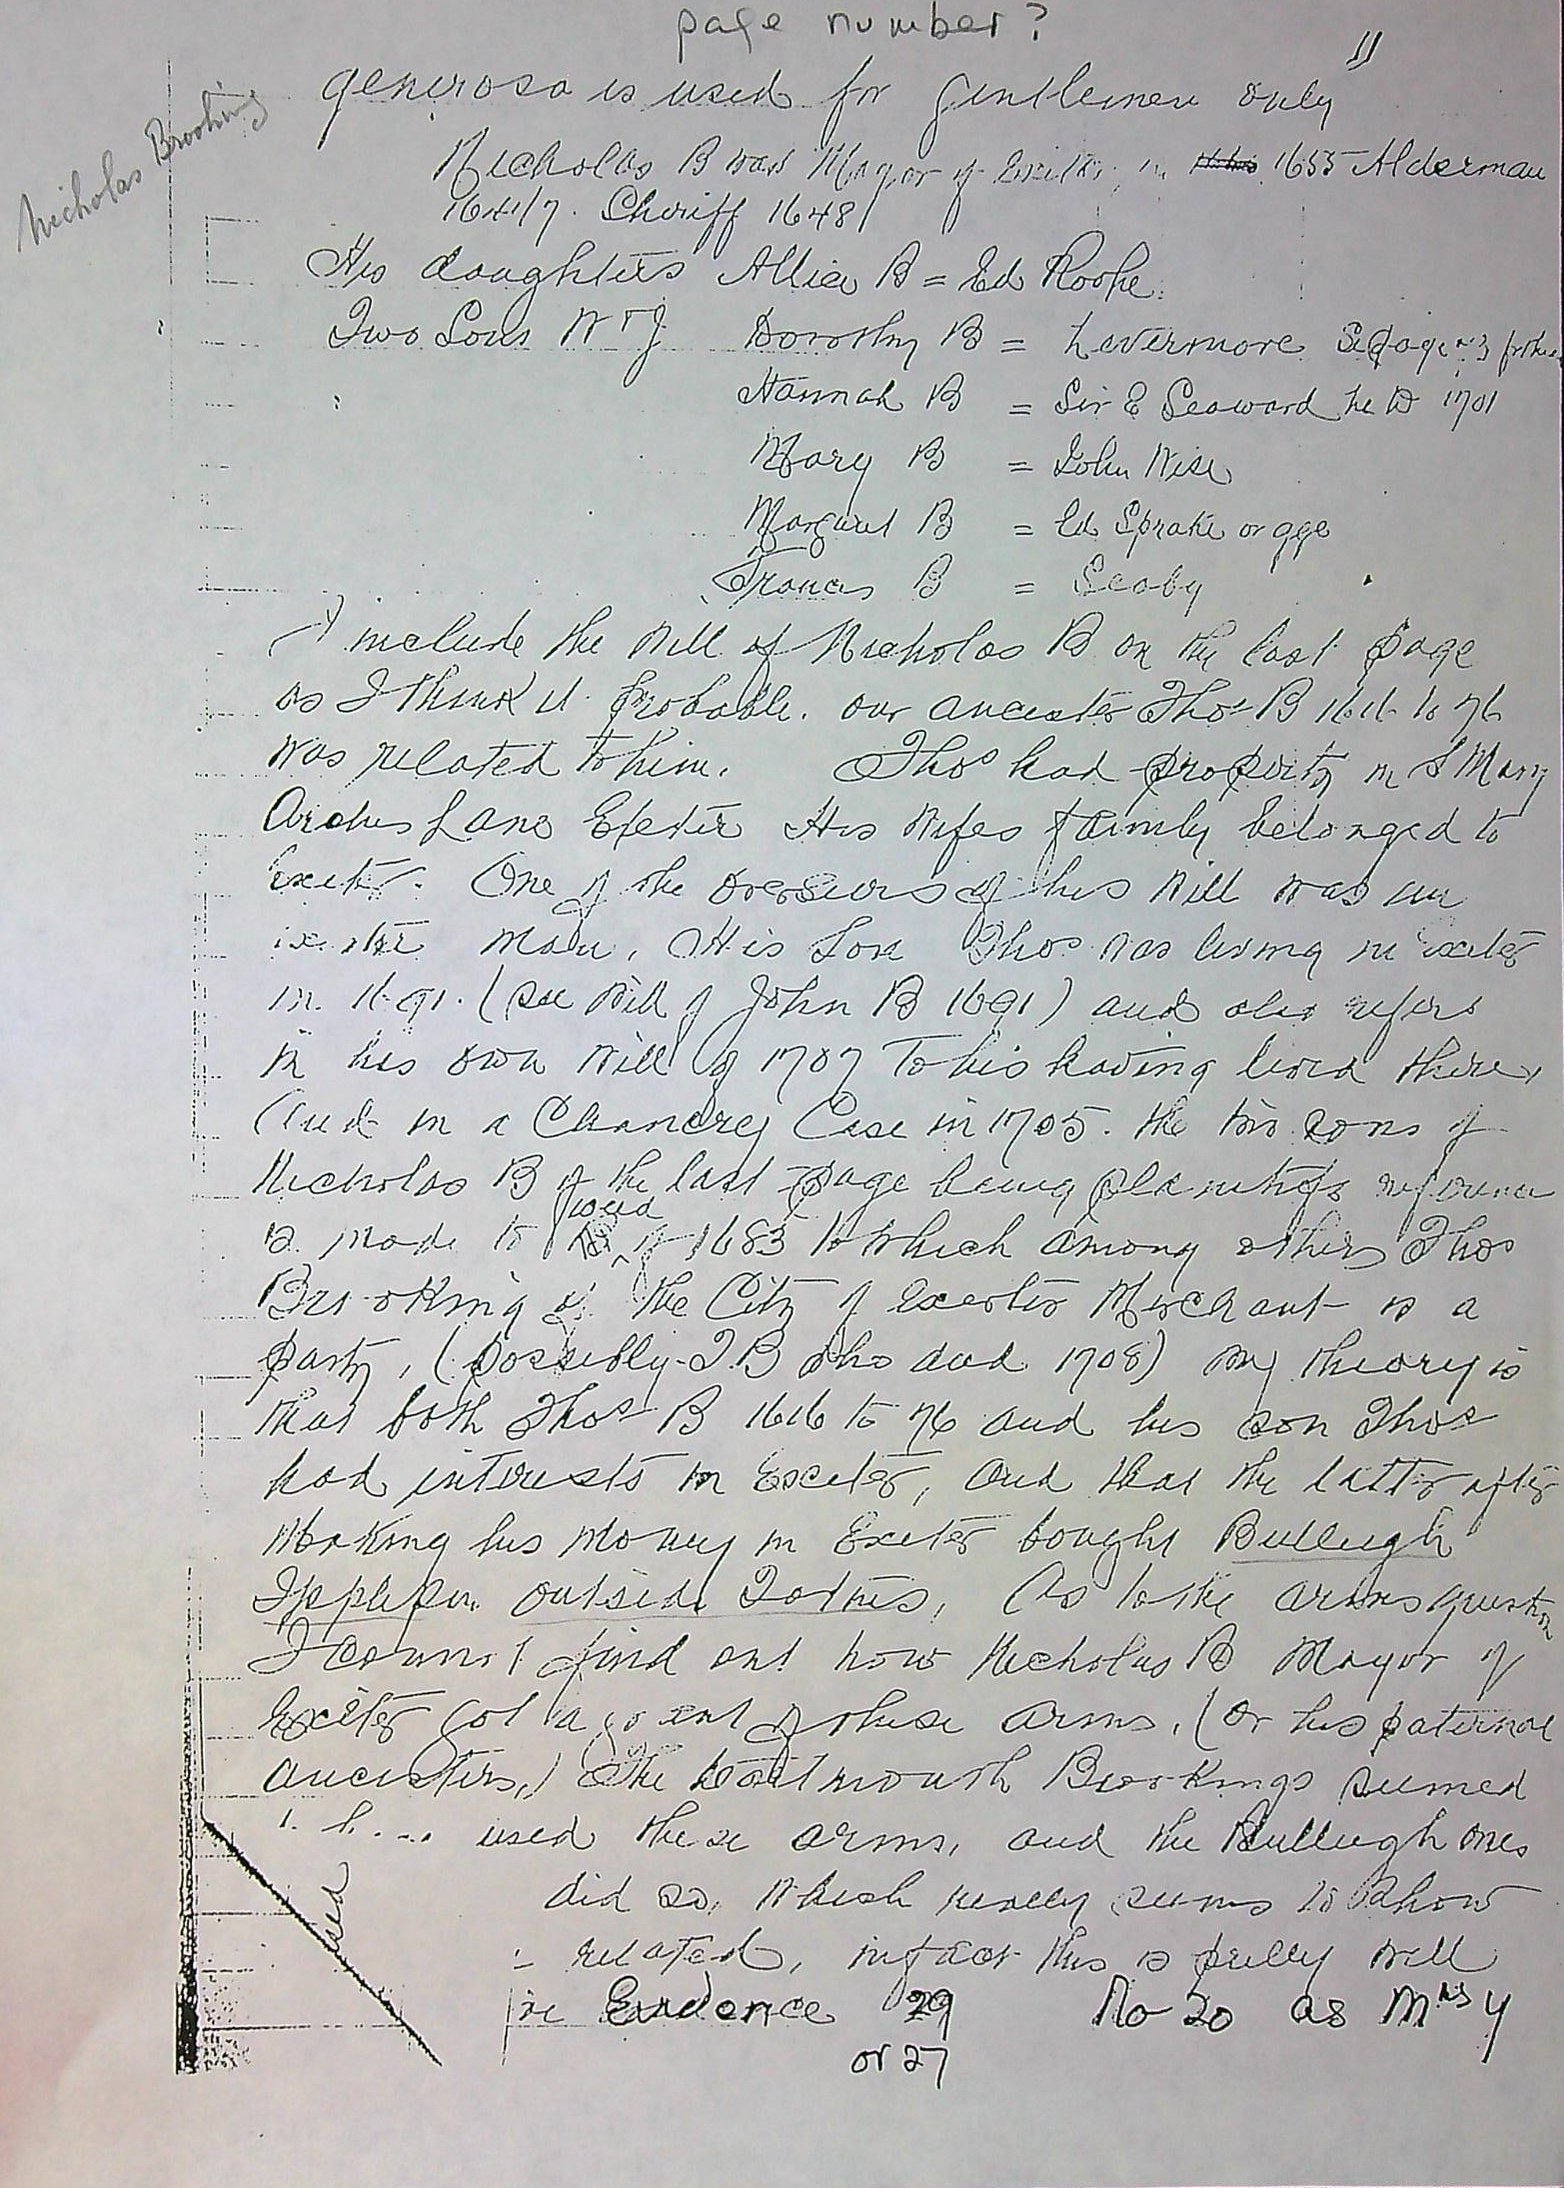 page number?
11
generosa is used for gentlemen only
Nicholas Brooking
Nicholas B was Mayor of Exeter in 1655 Alderman
1641/7. Sheriff 1648
His daughters Allice B = Ed Rooke
Two Sons N & J Dorothy B = Levermore
Hannah B = Sir E Seaward he D 1701
Mary B = John Wise
Margaret B = Ed Sprake or gge
Frances B = Seaby
I include the Will of Nicholas B on the last page
as I think it probable. our ancestor Thos B 1616 to 76
was related to him. Thos had property in S Mary
Arches Lane Exeter His Wifes family belonged to
Exeter. One of the overseers of his Will was an
exeter man, His Son Thos was living in exeter
in 1691. (see Will of John B 1691) and also refers
in his own Will of 1707 to his having lived there,
And in a Chancery Case in 1705. the two sons of
Nicholas B of the last page being plaintiffs reference
is made to deed of 1683 to which among others Thos
Brooking of the City of Exeter Merchant is a
party, (possibly T.B who died 1708) my theory is
that both Thos B 1616 to 76 and his son Thos
had interests in Exeter, and that the latter after
Making his Money in Exeter bought Bulleigh
Ipplepen outside Totnes, As to the arms question
I cannot find out how Nicholas B Mayor of
Exeter got a grant of these arms, (or his paternal
ancestors,) The Dartmouth Brookings seemed
used these arms, and the Bulleigh ones
did so, Which really seems to show
related, in fact this is pretty well
Evidence 29 No 20 as Mrs Y
or 27